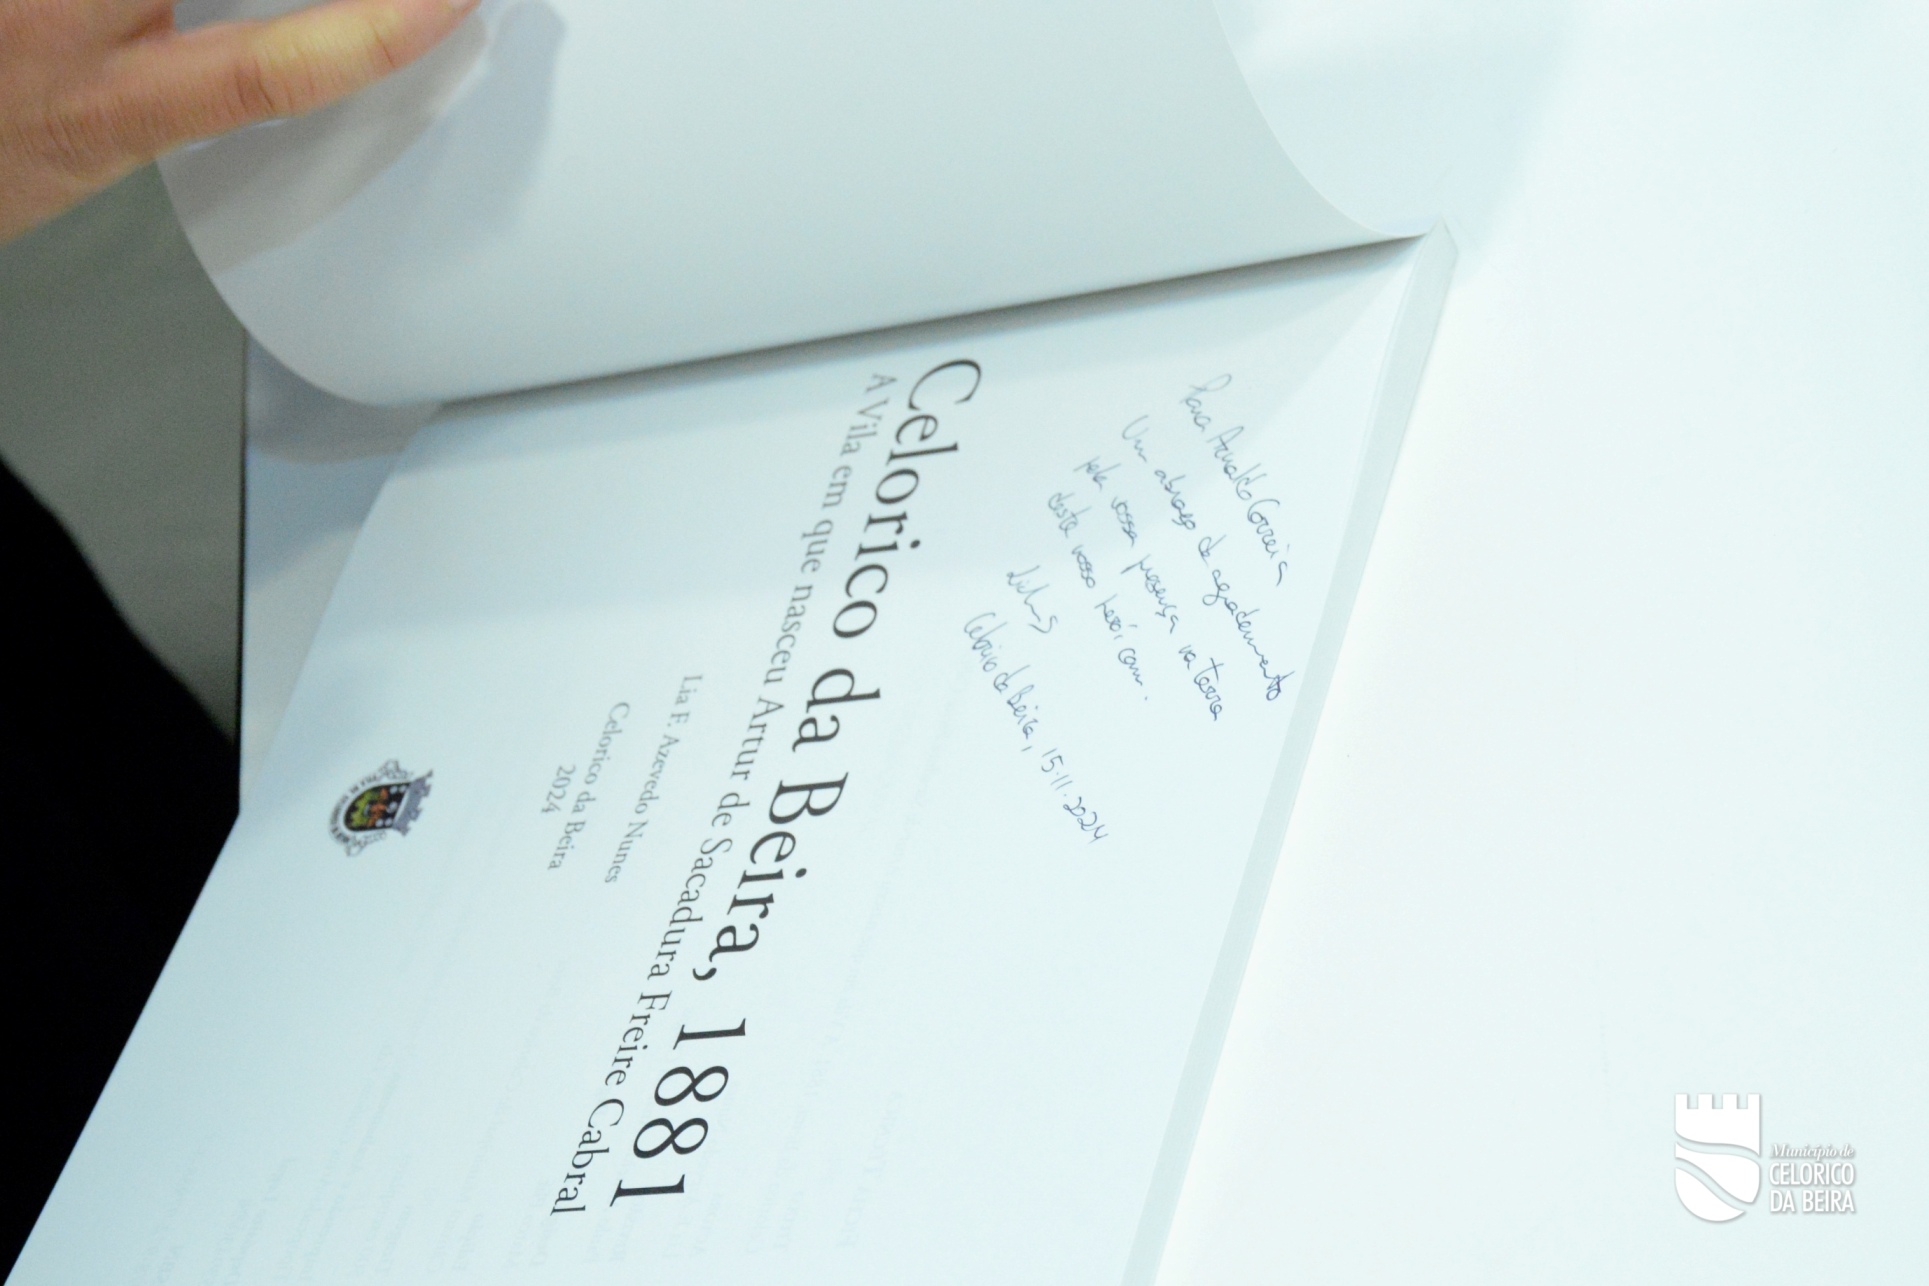 Para Arnaldo Correia
Um abraço de agradecimento
pela vossa presença na terra
deste vosso herói com.
Celorico da Beira, 15.11.2024
Celorico da Beira, 1881
A Vila em que nasceu Artur de Sacadura Freire Cabral
Lia F. Azevedo Nunes
Celorico da Beira
2024
Município de
CELORICO
DA BEIRA